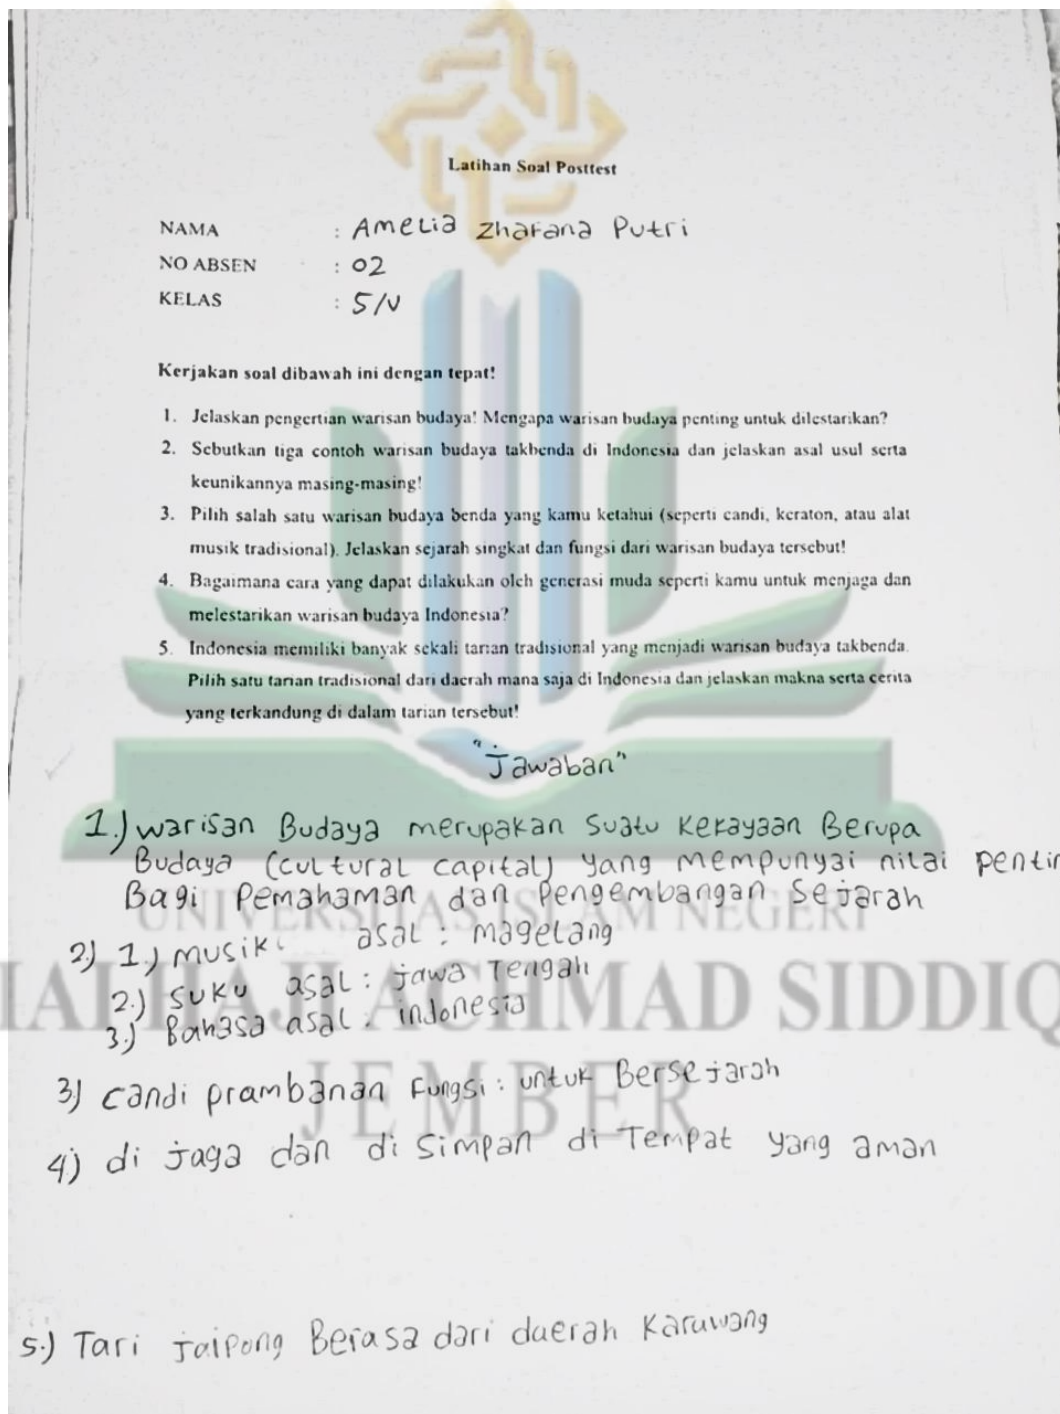 Latihan Soal Posttest
NAMA : Amelia Zhafana Putri
NO ABSEN : 02
KELAS : 5/V
Kerjakan soal dibawah ini dengan tepat!
1. Jelaskan pengertian warisan budaya! Mengapa warisan budaya penting untuk dilestarikan?
2. Sebutkan tiga contoh warisan budaya takbenda di Indonesia dan jelaskan asal usul serta
keunikannya masing-masing!
3. Pilih salah satu warisan budaya benda yang kamu ketahui (seperti candi, keraton, atau alat
musik tradisional). Jelaskan sejarah singkat dan fungsi dari warisan budaya tersebut!
4. Bagaimana cara yang dapat dilakukan oleh generasi muda seperti kamu untuk menjaga dan
melestarikan warisan budaya Indonesia?
5. Indonesia memiliki banyak sekali tarian tradisional yang menjadi warisan budaya takbenda.
Pilih satu tarian tradisional dari daerah mana saja di Indonesia dan jelaskan makna serta cerita
yang terkandung di dalam tarian tersebut!
"Jawaban"
1.) warisan Budaya merupakan suatu kekayaan Berupa
Budaya (cultural capital) yang mempunyai nilai pentin
Bagi Pemahaman dan Pengembangan Sejarah
UNIVERSITAS ISLAM NEGERI
2) 1.) musik asal : magelang
2.) suku asal : jawa Tengah
HAJI ACHMAD SIDDIQ
3.) Bahasa asal : indonesia
JEMBER
3) candi prambanan Fungsi : untuk Bersejarah
4) di jaga dan di simpan di Tempat yang aman
5.) Tari jaipong Berasa dari daerah Karawang